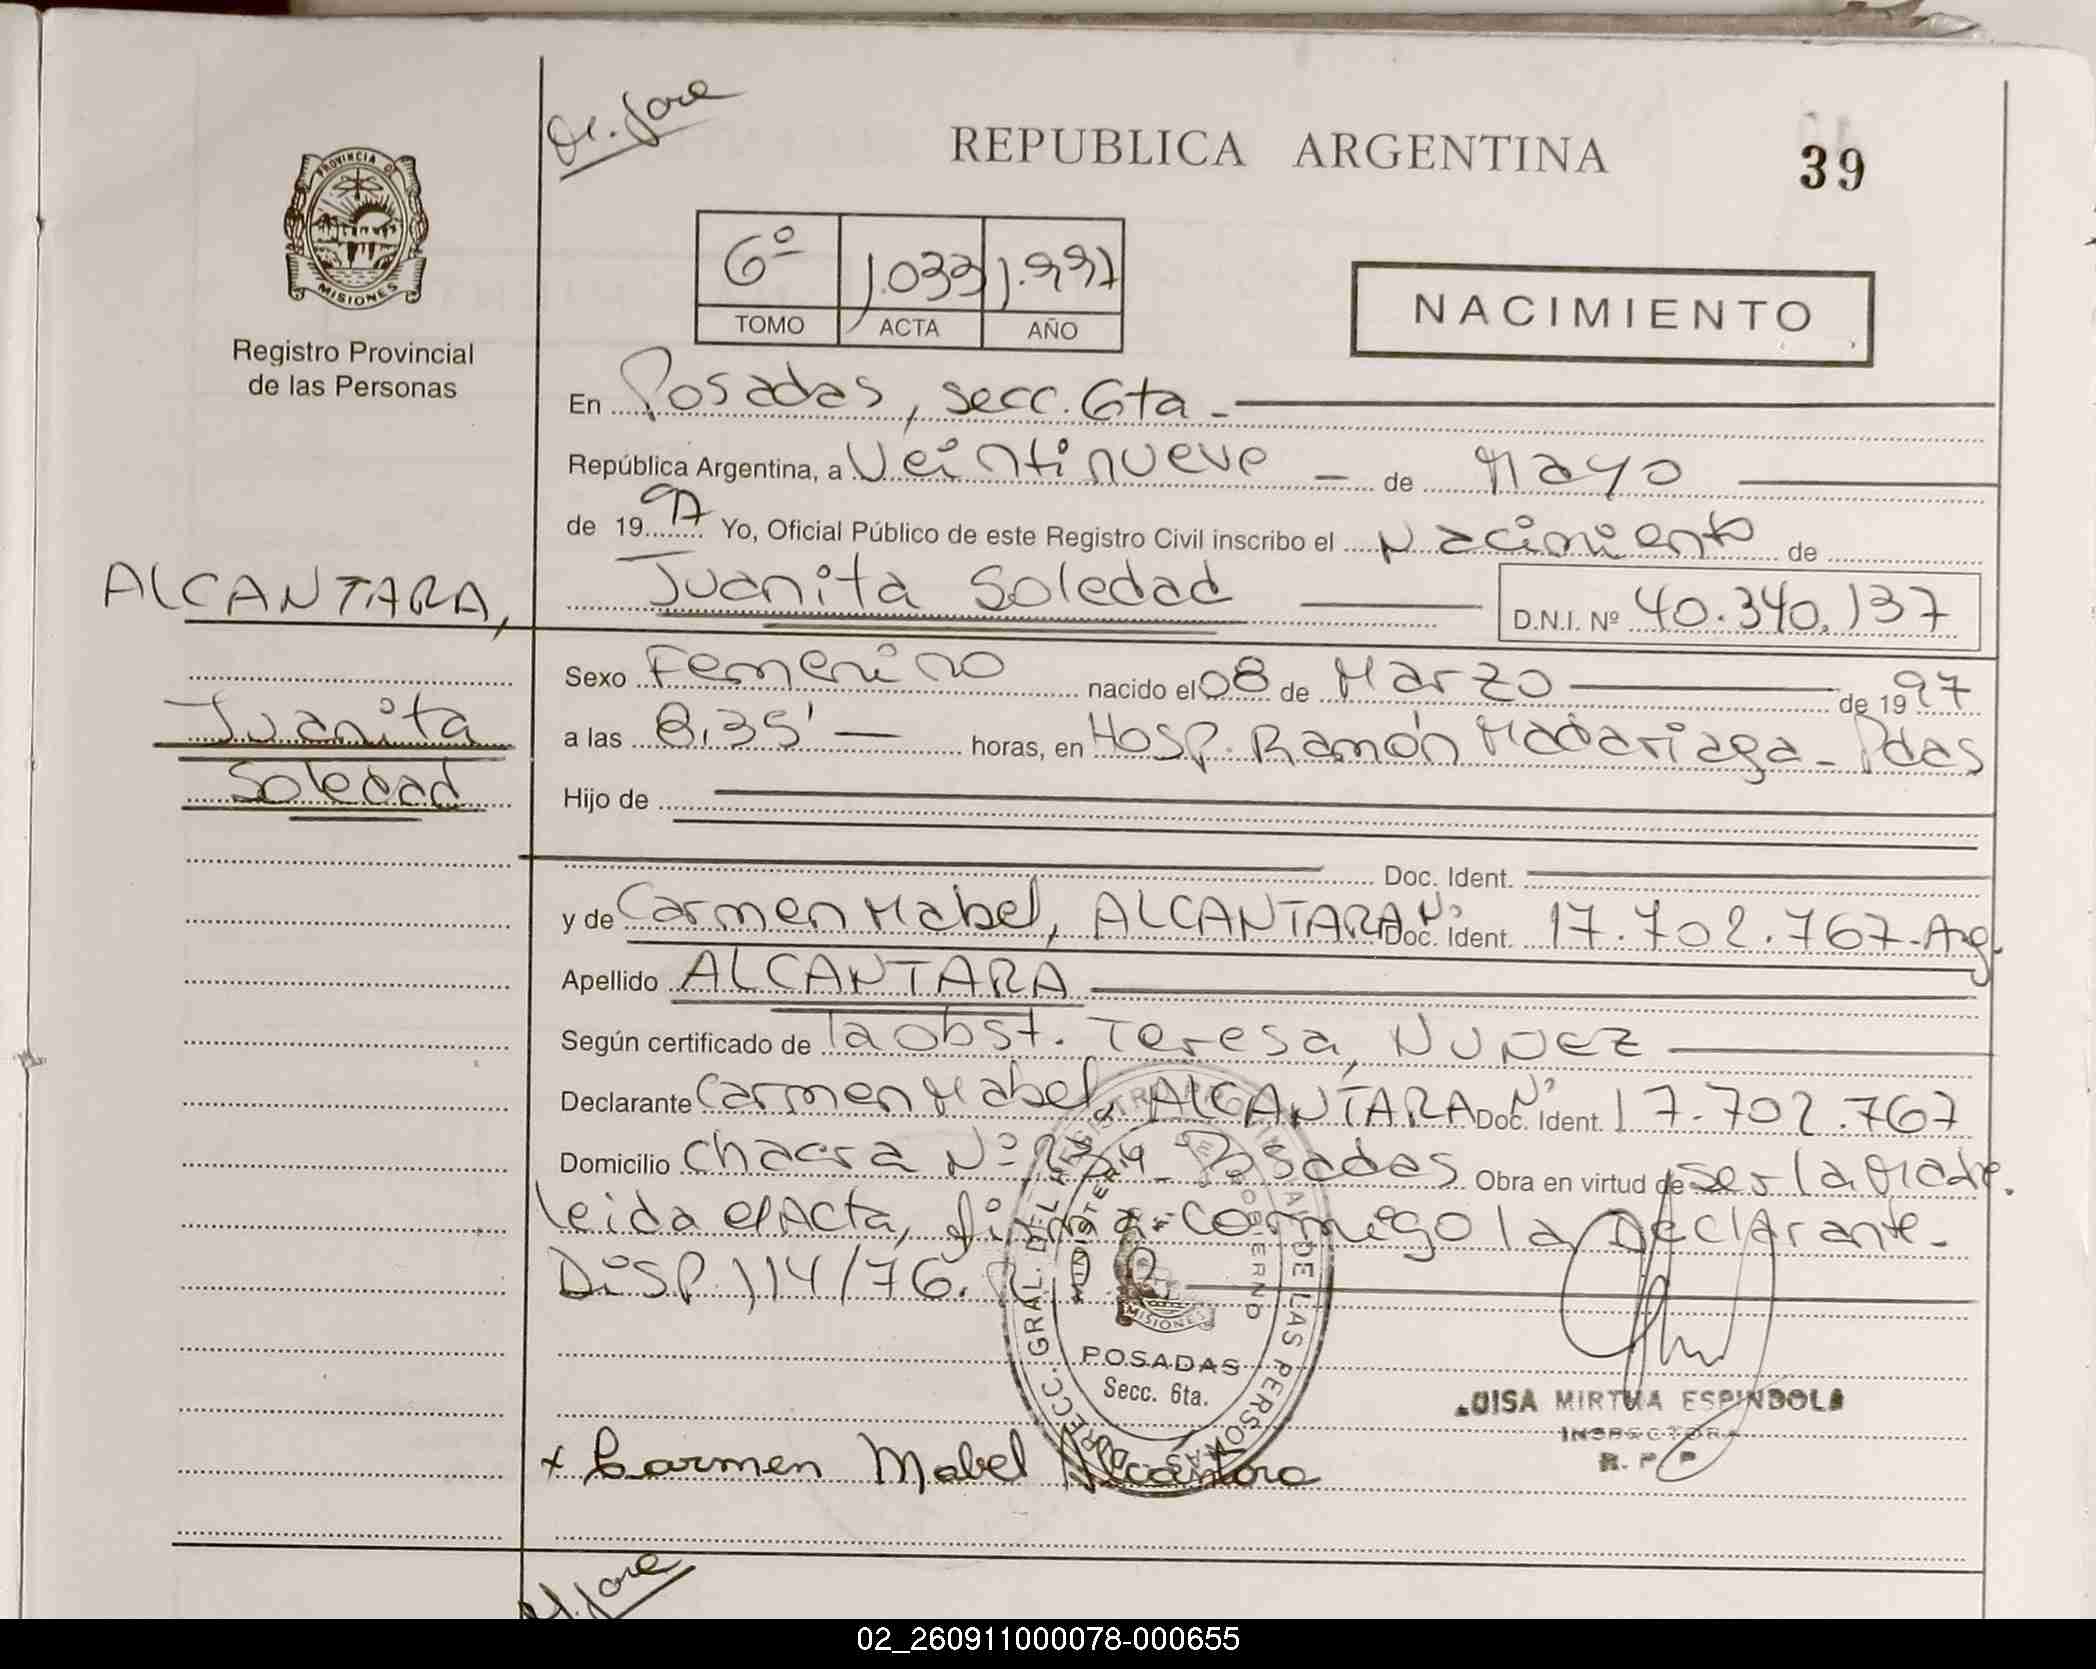 M. Jore
REPUBLICA ARGENTINA
39
PROVINCIA DE
MISIONES
Registro Provincial
de las Personas
6º 1.033 1.997
TOMO ACTA AÑO
NACIMIENTO
En Posadas, secc. 6ta.
República Argentina, a Veintinueve de Mayo
de 1997 Yo, Oficial Público de este Registro Civil inscribo el Nacimiento de
ALCANTARA,
Juanita Soledad D.N.I. Nº 40.340.137
Sexo Femenino nacido el 08 de Marzo de 1997
Juanita
a las 8,35' horas, en Hosp. Ramón Madariaga - Pdas
Soledad
Hijo de
Doc. Ident.
y de Carmen Mabel, ALCANTARA Doc. Ident. Nº 17.702.767-Arg.
Apellido ALCANTARA
Según certificado de la obst. Teresa, NUÑEZ
Declarante Carmen Mabel, ALCANTARA Doc. Ident. Nº 17.702.767
Domicilio chacra Nº Posadas Obra en virtud de ser la Madre.
leida el Acta, firma conmigo la Declarante.
DISP. 114/76.
DIRECC. GRAL. DEL REGISTRO PROVINCIAL DE LAS PERSONAS
MINISTERIO DE GOBIERNO
MISIONES
POSADAS
Secc. 6ta.
LUISA MIRTHA ESPINDOLA
INSPECTORA
R. P. P
x Carmen Mabel Alcántara
M. Jore
02_260911000078-000655